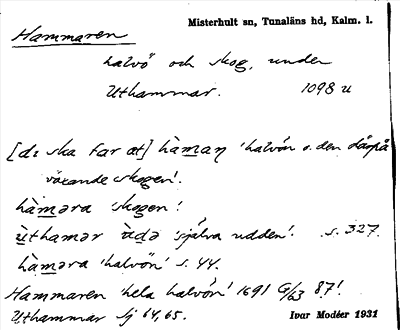 Misterhult sn, Tunaläns hd, Kalm. l.
Hammaren
halvö och skog, under
Uthammar. 1098 u
[dɪ ska far at] hàman 'halvön o. den därpå
växande skogen'.
hàməra 'skogen'.
ùthamar àdə 'själva udden'. s. 327.
hàməra 'halvön' s. 44.
Hammaren 'hela halvön' 1691 G/63 87'.
Uthammar Sj 64, 65.
Ivar Modéer 1931